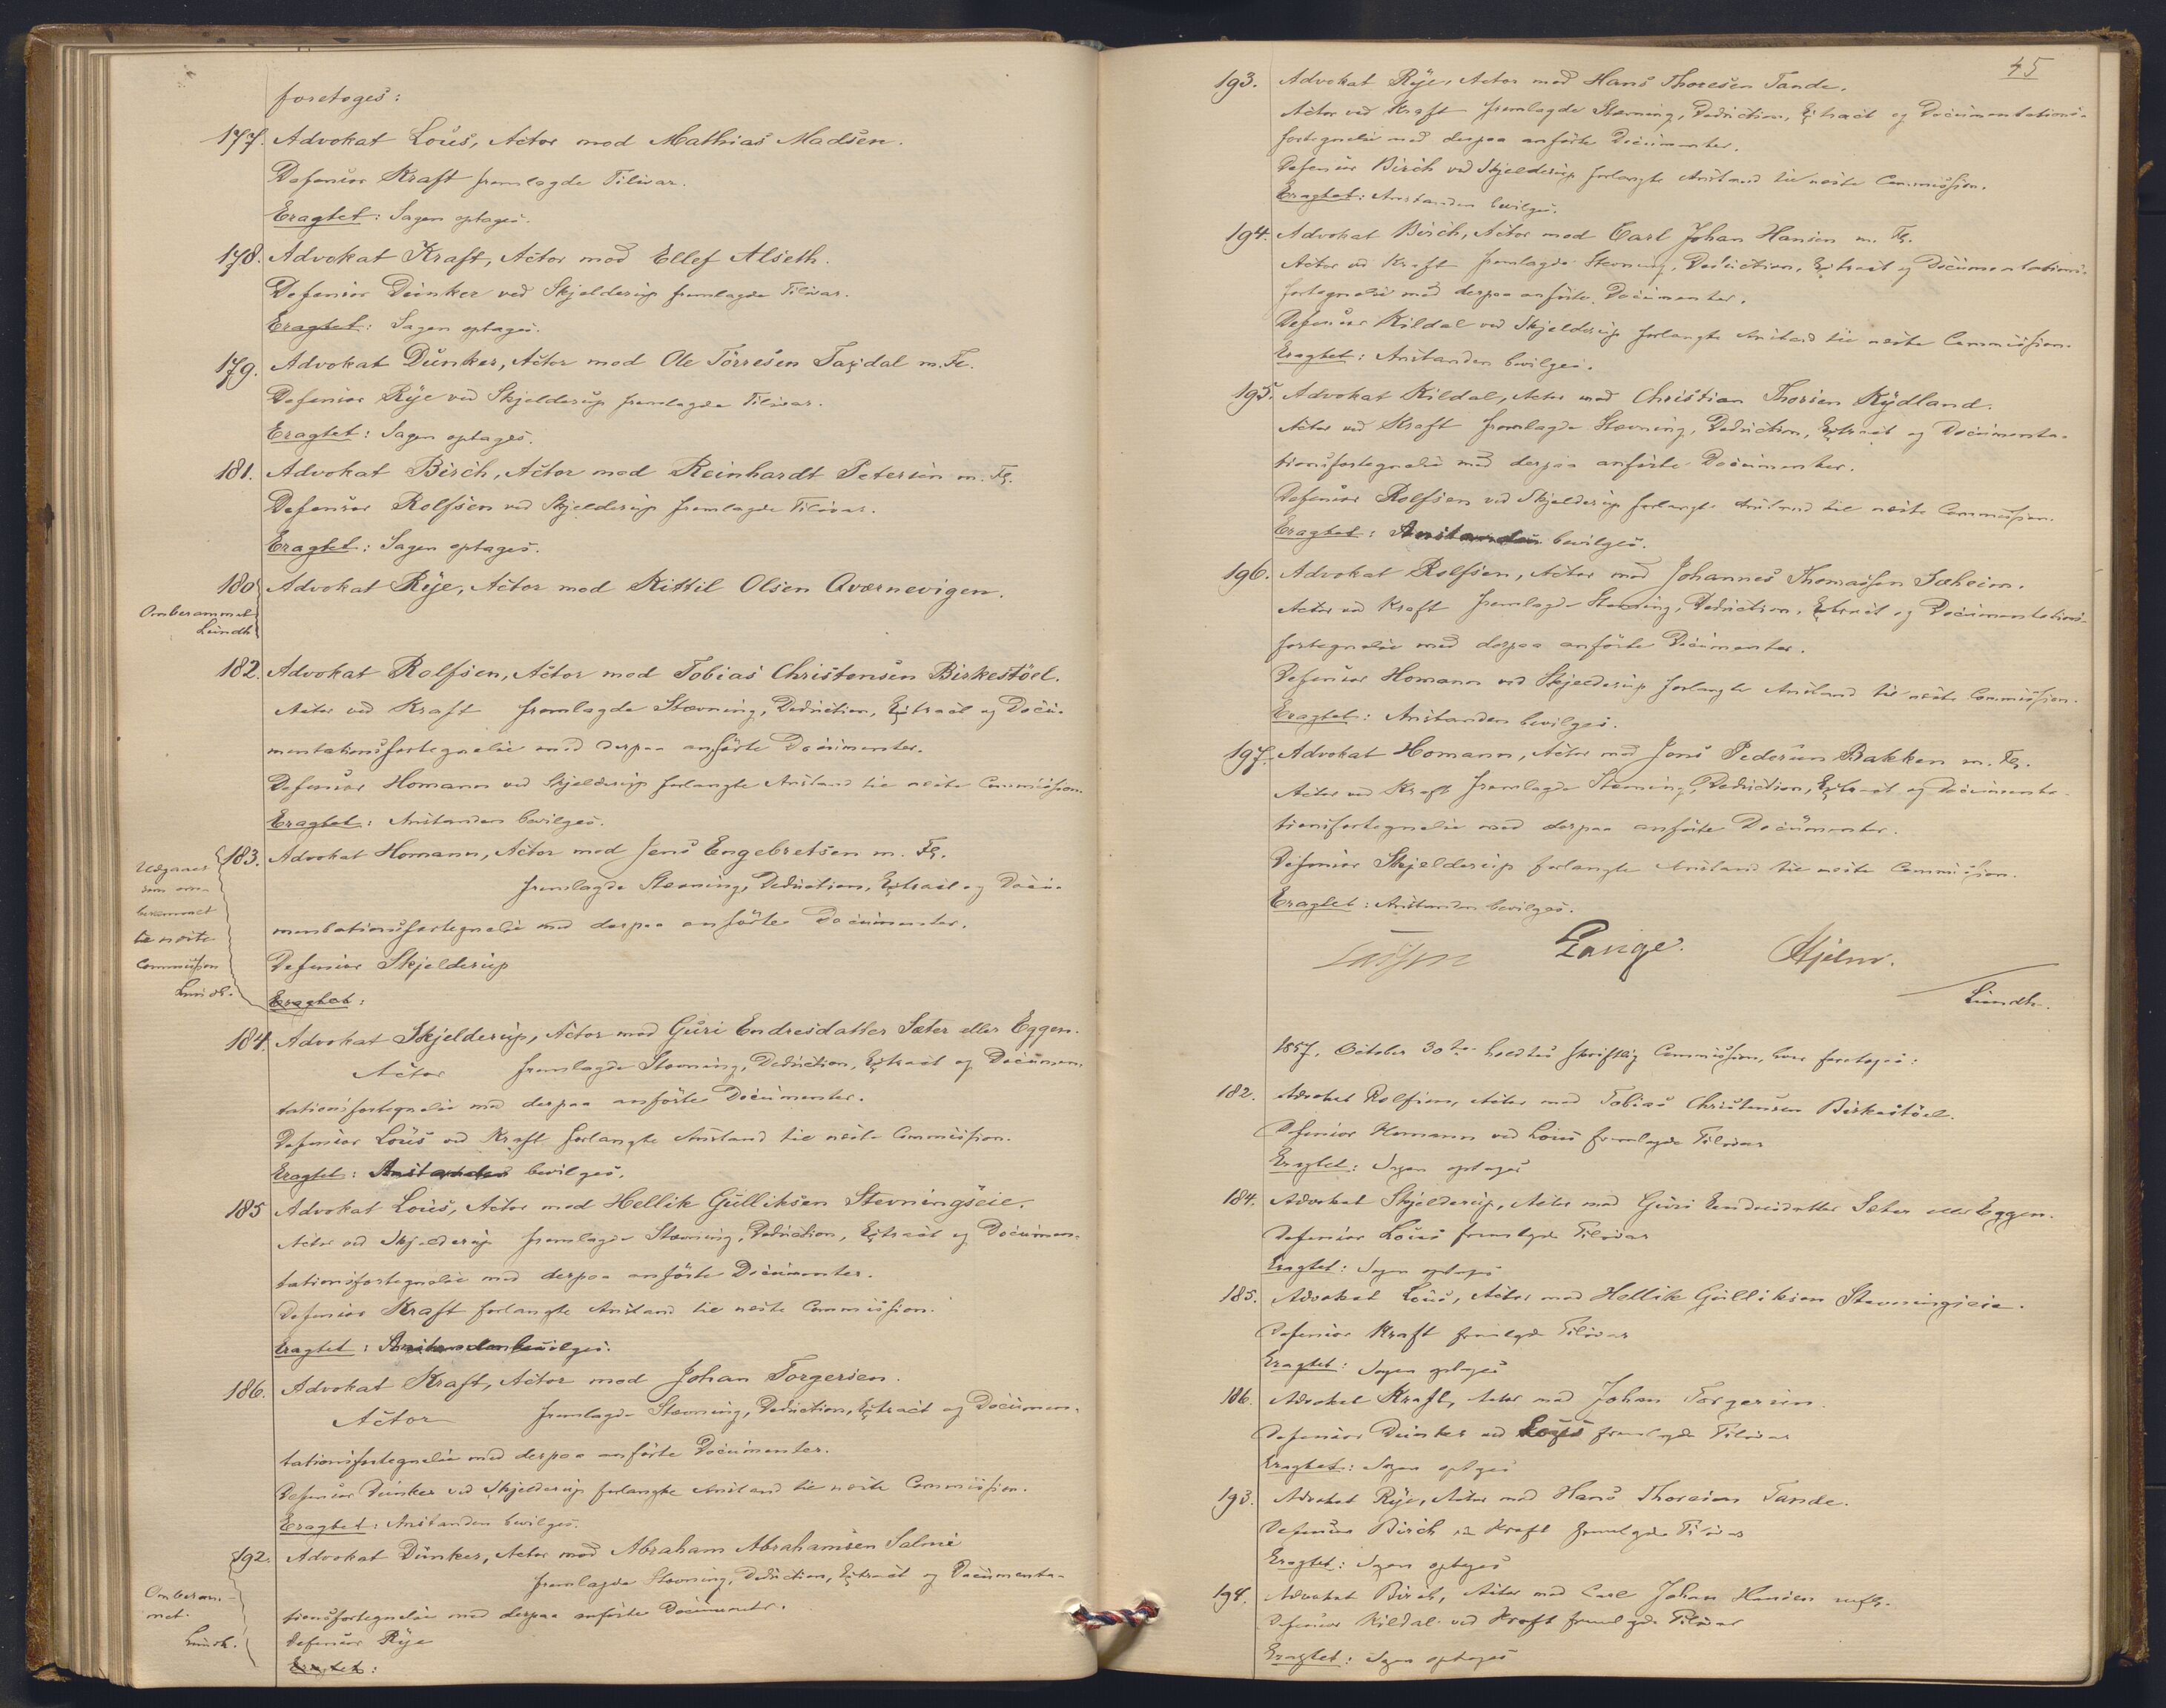 foretages:
177. Advokat Loüs, Actor mod Mathias Madsen.
Defensor Kraft fremlagde Tilsvar.
Eragtet: Sagen optages.
178. Advokat Kraft, Actor mod Ellef Alseth.
Defensor Dünker ved Skjelderup fremlagde Tilsvar.
Eragtet: Sagen optages.
179. Advokat Dünker, Actor mod Ole Törresen Taxdal m. Fl.
Defensor Rÿe ved Skjelderup fremlagde Tilsvar.
Eragtet: Sagen optages.
181. Advokat Birch, Actor mod Reinhardt Petersen m. Fl.
Defensor Rolfsen ved Skjelderup fremlagde Tilsvar.
Eragtet: Sagen optages.
180 Advokat Rÿe, Actor mod Kittil Olsen Qværnevigen.
Omberammet
Lundh
182. Advokat Rolfsen, Actor mod Tobias Christensen Birkestöel.
Actor ved Kraft fremlagde Stevning, Deduction, Extract og Docu-
mentationsfortegnelse med derpaa anförte Documenter.
Defensor Homann ved Skjelderup forlangte Anstand til neste Commission.
Eragtet: Anstanden bevilges.
183. Advokat Homann, Actor mod Jens Engebretsen m. Fl.
fremlagde Stevning, Deduction, Extract og Docu-
mentationsfortegnelse med derpaa anförte Documenter.
Defensor Skjelderup
Eragtet:
Udgaaer
som om-
berammet
til neste
Commission
Lundh.
184. Advokat Skjelderup, Actor mod Guri Endresdatter Sæter eller Eggen.
Actor fremlagde Stevning, Deduction, Extract og Documen-
tationsfortegnelse med derpaa anförte Documenter.
Defensor Loüs ved Kraft forlangte Anstand til neste Commission.
Eragtet: Anstanden bevilges.
185 Advokat Loüs, Actor mod Hellik Gulliksen Stevningseie.
Actor ved Skjelderup fremlagde Stevning, Deduction, Extract og Documen-
tationsfortegnelse med derpaa anförte Documenter.
Defensor Kraft forlangte Anstand til neste Commission.
Eragtet: Anstanden bevilges.
186. Advokat Kraft, Actor mod Johan Torgersen.
Actor fremlagde Stevning, Deduction, Extract og Documen-
tationsfortegnelse med derpaa anförte Documenter.
Defensor Dunker ved Skjelderup forlangte Anstand til neste Commission.
Eragtet: Anstanden bevilges.
192. Advokat Dünker, Actor mod Abraham Abrahamsen Salme
fremlagde Stevning, Deduction, Extract og Documenta-
tionsfortegnelse med derpaa anförte Documenter.
Defensor Rÿe
Eragtet:
Omberam-
met.
Lundh.
45
193. Advokat Rÿe, Actor mod Hans Thoresen Tande.
Actor ved Kraft fremlagde Stevning, Deduction, Extract og Documentations-
fortegnelse med derpaa anförte Documenter.
Defensor Birch ved Skjelderup forlangte Anstand til neste Commission.
Eragtet: Anstanden bevilges.
194. Advokat Birch, Actor mod Carl Johan Hansen m. Fl.
Actor ved Kraft fremlagde Stevning, Deduction, Extract og Documentations-
fortegnelse med derpaa anförte Documenter.
Defensor Kildal ved Skjelderup forlangte Anstand til neste Commission.
Eragtet: Anstanden bevilges.
195. Advokat Kildal, Actor mod Christian Thorsen Rÿdland.
Actor ved Kraft fremlagde Stevning, Deduction, Extract og Documenta-
tionsfortegnelse med derpaa anförte Documenter.
Defensor Rolfsen ved Skjelderup forlangte Anstand til neste Commission.
Eragtet: Anstanden bevilges.
196. Advokat Rolfsen, Actor mod Johannes Thomassen Sæheim.
Actor ved Kraft fremlagde Stevning, Deduction, Extract og Documentations-
fortegnelse med derpaa anförte Documenter.
Defensor Homann ved Skjelderup forlangte Anstand til neste Commission.
Eragtet: Anstanden bevilges.
197. Advokat Homann, Actor mod Jens Pedersen Bakken m. Fl.
Actor ved Kraft fremlagde Stevning, Deduction, Extract og Documenta-
tionsfortegnelse med derpaa anförte Documenter.
Defensor Skjelderup forlangte Anstand til neste Commission.
Eragtet: Anstanden bevilges.
Lange. Hjelm.
Lundh.
1857, October 30te holdtes skriftlig Commission, hvor foretoges:
182. Advokat Rolfsen, Actor mod Tobias Christensen Birkestöel.
Defensor Homann ved Loüs fremlagde Tilsvar
Eragtet: Sagen optages
184. Advokat Skjelderup, Actor mod Guri Endresdatter Sæter eller Eggen.
Defensor Loüs fremlagde Tilsvar
Eragtet: Sagen optages
185. Advokat Loüs, Actor mod Hellik Gulliksen Stevningseie.
Defensor Kraft fremlagde Tilsvar
Eragtet: Sagen optages
186. Advokat Kraft, Actor mod Johan Torgersen.
Defensor Dunker ved Loüs fremlagde Tilsvar
Eragtet: Sagen optages
193. Advokat Rÿe, Actor mod Hans Thoresen Tande.
Defensor Birch ved Kraft fremlagde Tilsvar
Eragtet: Sagen optages
194. Advokat Birch, Actor mod Carl Johan Hansen mfl.
Defensor Kildal ved Kraft fremlagde Tilsvar
Eragtet: Sagen optages